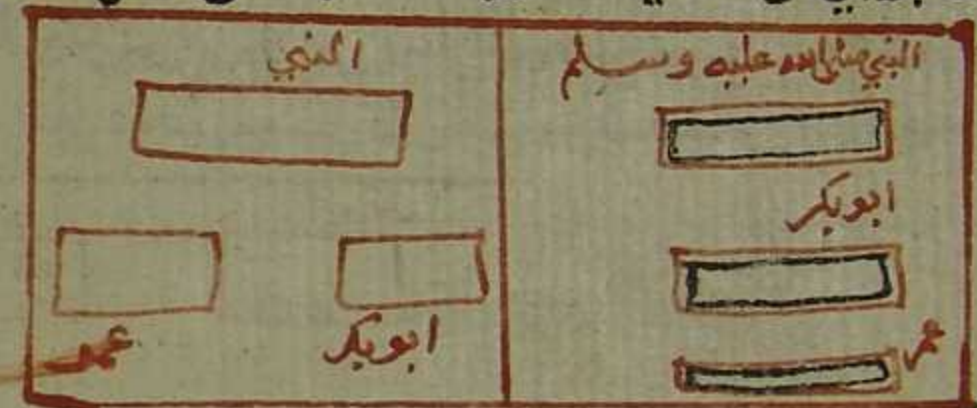 النبي صلى الله عليه وسلم
ابوبكر
عمر
النبي
ابوبكر
عمر